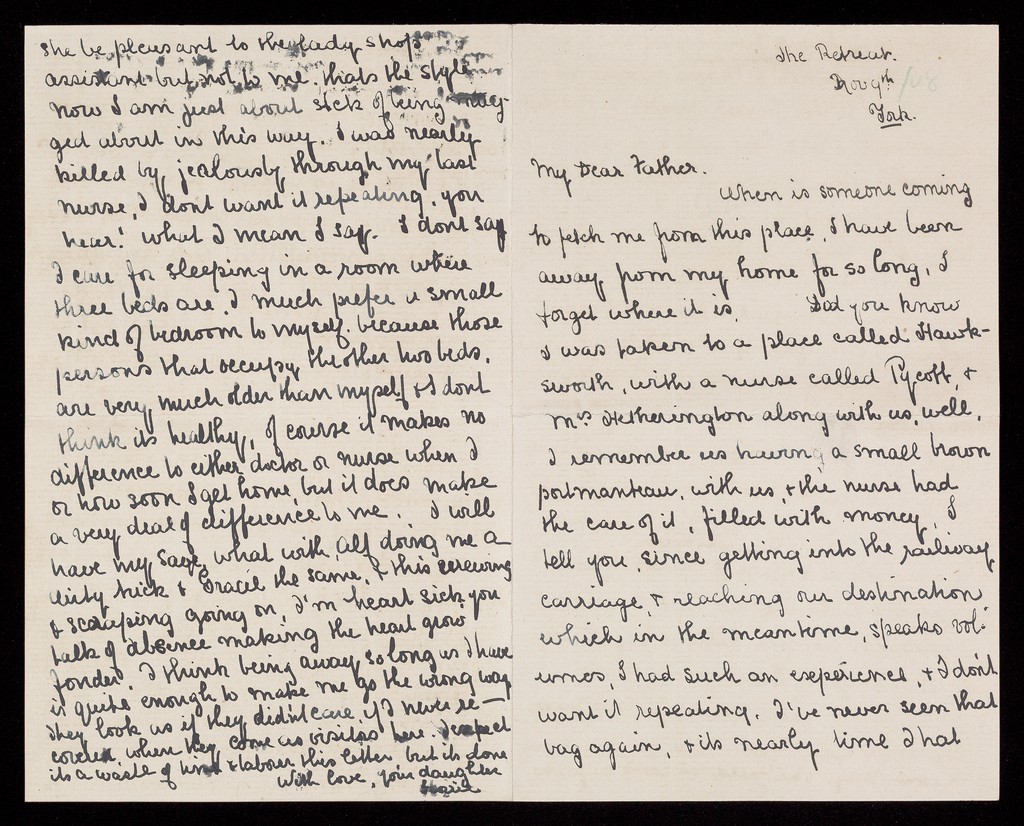 The Retreat.
Nov 9th /08
York.
My Dear Father.
When is someone coming
to fetch me from this place, I have been
away from my home for so long, I
forget where it is. Did you know
I was taken to a place called Hawk-
sworth, with a nurse called Pycott, &
Mrs Hetherington along with us, well,
I remember us having a small brown
portmanteau, with us, & the nurse had
the care of it, filled with money, I
tell you, since getting into the railway
carriage & reaching our destination
which in the meantime, speaks vol-
umes, I had such an experience, & I don't
want it repeating. I've never seen that
bag again, & its nearly time I hat
she be pleasant to the lady shop
assistant but not to me. thats the style
now I am just about sick of being
ged about in this way. I was nearly
killed by jealously through my last
nurse, I don't want it repeating. you
hear! what I mean I say. I dont say
I care for sleeping in a room where
three beds are. I much prefer a small
kind of bedroom to myself. because those
persons that occupy the other two beds,
are very much older than myself & I dont
think its healthy, of course it makes no
difference to either doctor or nurse when I
or how soon I get home, but it does make
a very deal of difference to me. I will
have my saye, what with, Alf doing me a
dirty trick & Gracie the same, & this screwing
& scraping going on, I'm heart sick you
talk of absence making the heart grow
fonder. I think being away so long as I have
is quite enough to make me go the wrong way
they look as if they didn't care, if I never re-
covered, when they come as visitors here. I expect
its a waste of time & labour this letter but its done
With love, your daughter